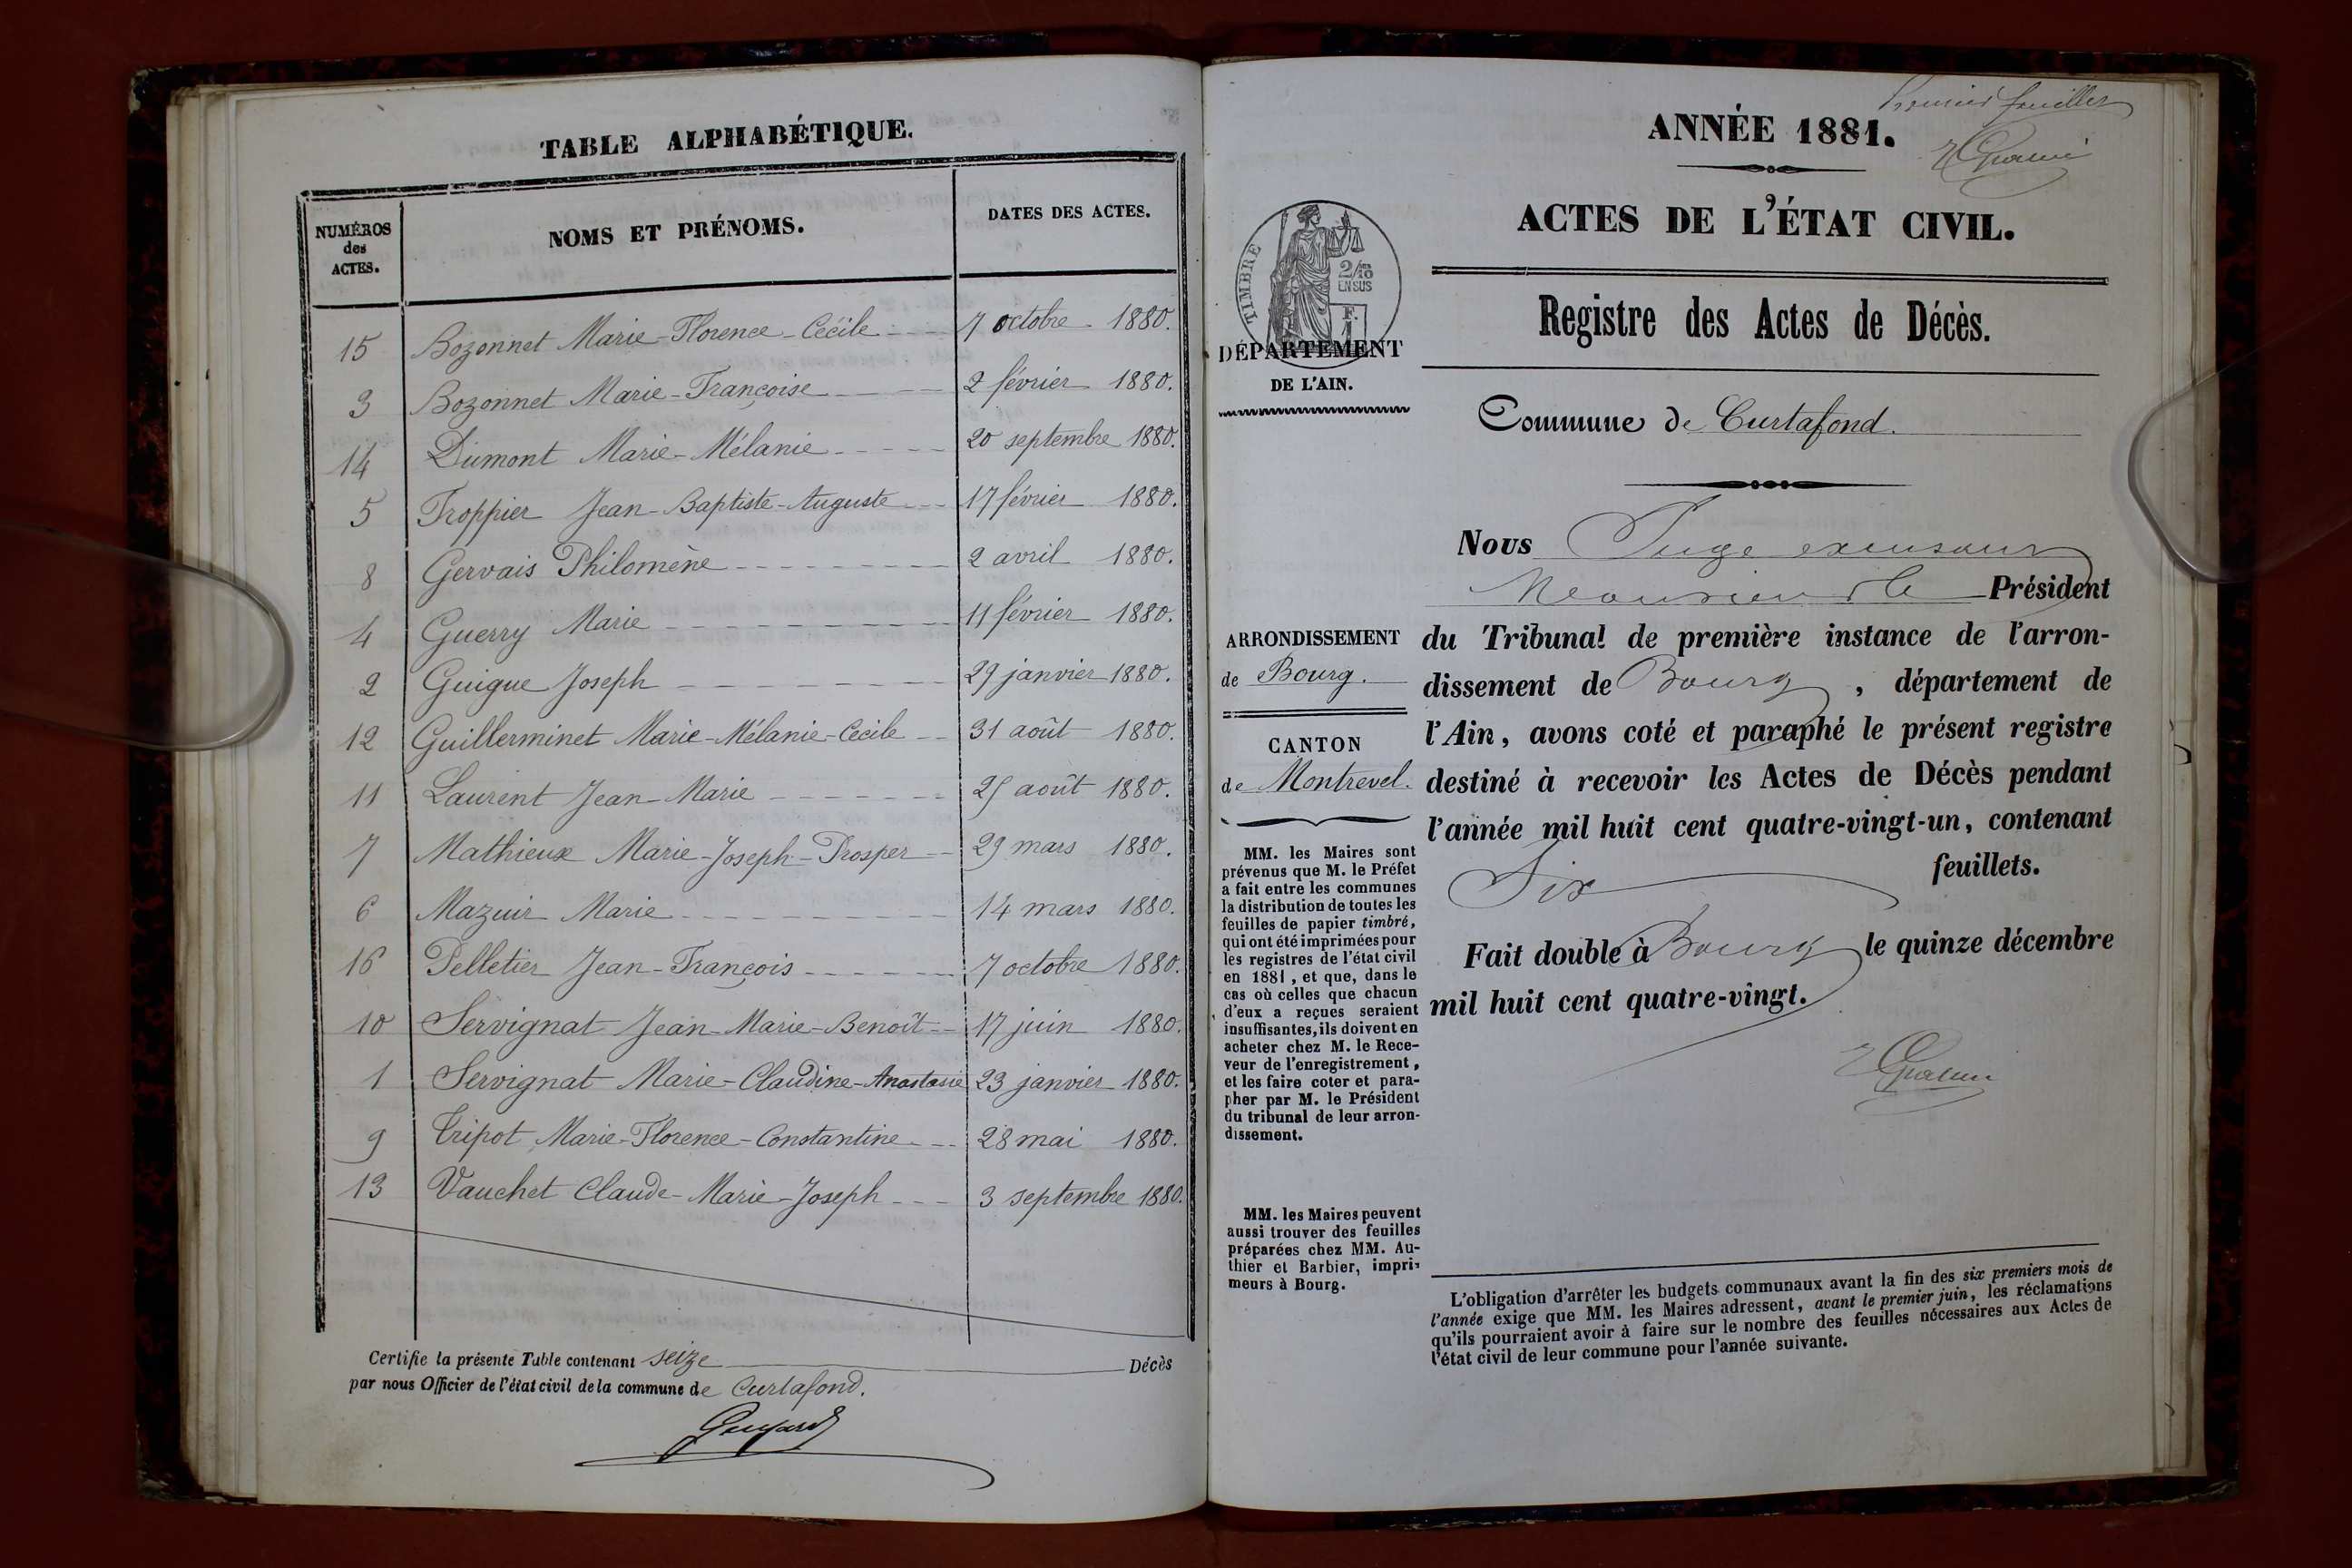 TABLE ALPHABÉTIQUE.
NUMÉROS des ACTES. NOMS ET PRÉNOMS. DATES DES ACTES.
15 Bozonnet Marie-Florence-Cécile 7 octobre 1880.
3 Bozonnet Marie-Françoise 2 février 1880.
14 Dumont Marie-Mélanie 20 septembre 1880.
5 Froppier Jean-Baptiste-Auguste 17 février 1880.
8 Gervais Philomène 2 avril 1880.
4 Guerry Marie 11 février 1880.
2 Guigue Joseph 29 janvier 1880.
12 Guillerminet Marie-Mélanie-Cecile 31 août 1880.
11 Laurent Jean-Marie 25 août 1880.
7 Mathieux Marie-Joseph-Prosper 29 mars 1880.
6 Mazuir Marie 14 mars 1880.
16 Pelletier Jean-François 7 octobre 1880.
10 Servignat Jean-Marie-Benoît 17 juin 1880.
1 Servignat Marie-Claudine-Anastasie 23 janvier 1880.
9 Tripot Marie-Florence-Constantine 28 mai 1880.
13 Vauchet Claude-Marie-Joseph 3 septembre 1880.
Certifie la présente Table contenant seize Décès
par nous Officier de l'état civil de la commune de Curtafond.
Premier feuillet
ANNÉE 1881.
ACTES DE L'ÉTAT CIVIL.
TIMBRE
2/10 EN SUS
F.
DÉPARTEMENT
DE L'AIN.
Registre des Actes de Décès.
Commune de Curtafond.
ARRONDISSEMENT
de Bourg.
CANTON
de Montrevel.
MM. les Maires sont
prévenus que M. le Préfet
a fait entre les communes
la distribution de toutes les
feuilles de papier timbré,
qui ont été imprimées pour
les registres de l'état civil
en 1881, et que, dans le
cas où celles que chacun
d'eux a reçues seraient
insuffisantes, ils doivent en
acheter chez M. le Rece-
veur de l'enregistrement,
et les faire coter et para-
pher par M. le Président
du tribunal de leur arron-
dissement.
MM. les Maires peuvent
aussi trouver des feuilles
préparées chez MM. Au-
thier et Barbier, impri-
meurs à Bourg.
Nous Juge
Monsieur le Président
du Tribunal de première instance de l'arron-
dissement de Bourg, département de
l'Ain, avons coté et paraphé le présent registre
destiné à recevoir les Actes de Décès pendant
l'année mil huit cent quatre-vingt-un, contenant
Six feuillets.
Fait double à Bourg le quinze décembre
mil huit cent quatre-vingt.
L'obligation d'arrêter les budgets communaux avant la fin des six premiers mois de
l'année exige que MM. les Maires adressent, avant le premier juin, les réclamations
qu'ils pourraient avoir à faire sur le nombre des feuilles nécessaires aux Actes de
l'état civil de leur commune pour l'année suivante.